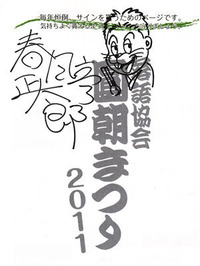 毎年恒例、サインを貰うためのページです。
気持ちよく
春風亭
正太郎
落語協会
圓朝まつり
2011